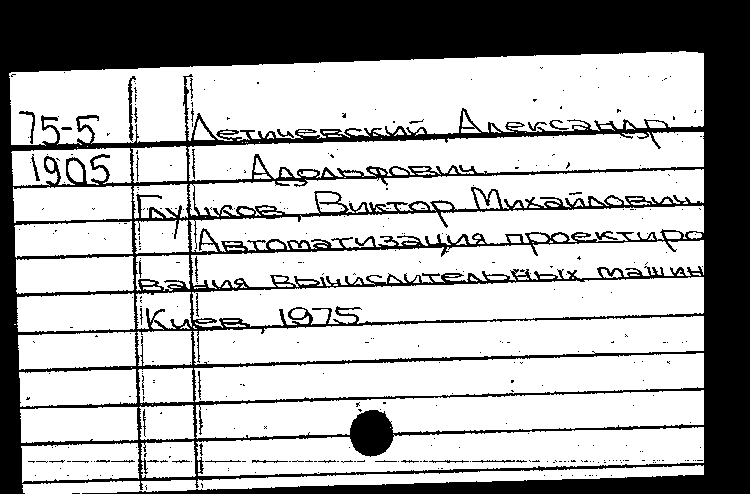 75-5 Летичевский, Александр
1905 Адольфович.
Глушков, Виктор Михайлович.
Автоматизация проектиро
вания вычислительных машин
Киев, 1975.